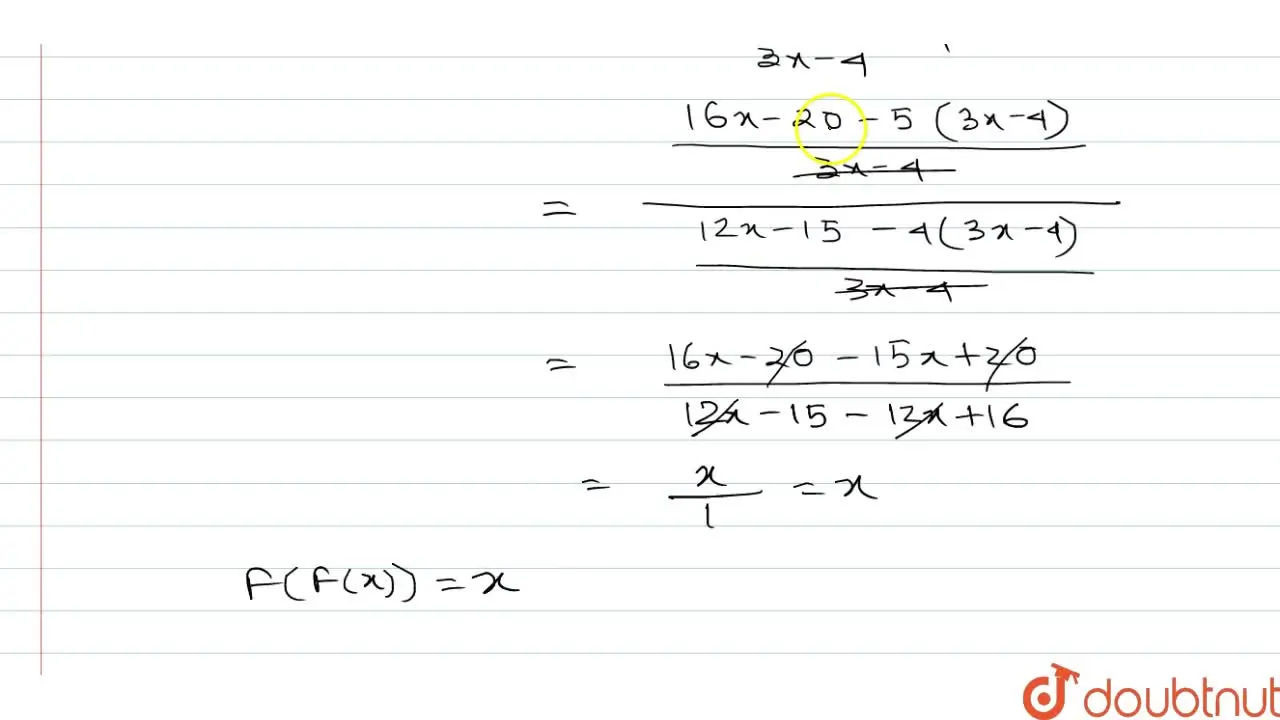 3x-4
16x-20-5(3x-4)
3x-4
=
12x-15-4(3x-4)
3x-4
= 16x-20-15x+20
12x-15-12x+16
= x/1 = x
F(F(x))=x
doubtnut